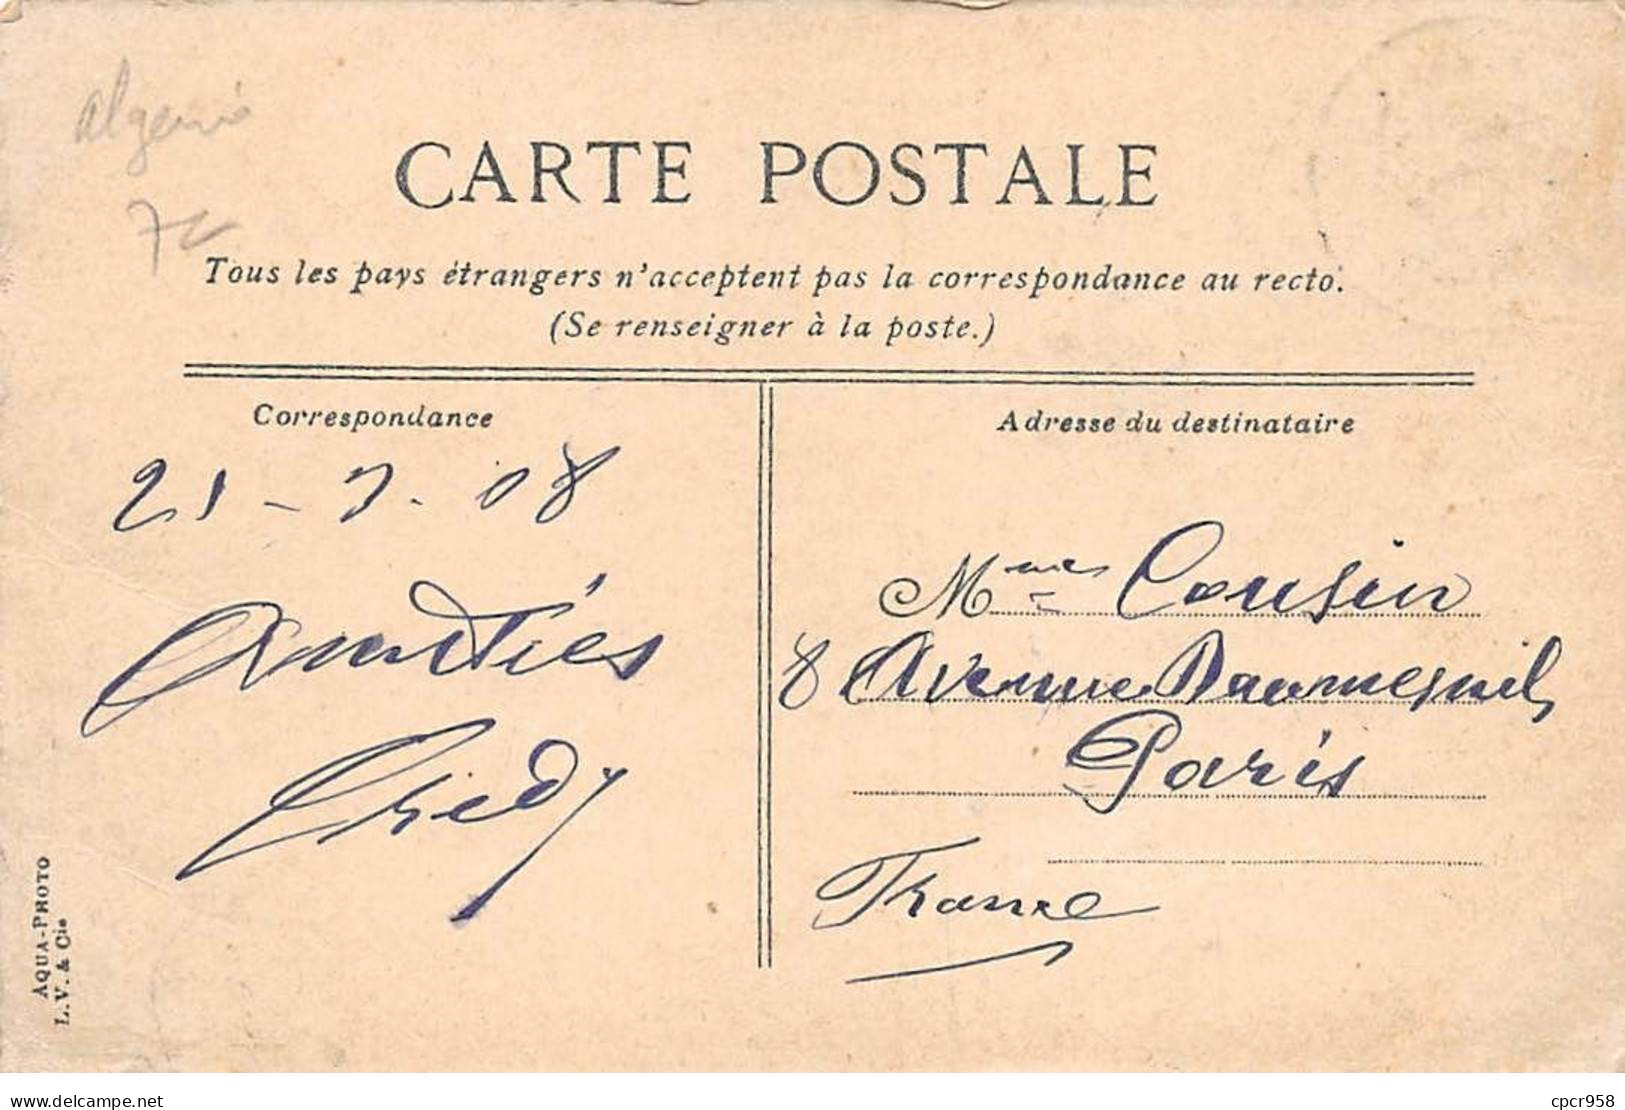 algerie
CARTE POSTALE
Tous les pays étrangers n'acceptent pas la correspondance au recto.
(Se renseigner à la poste.)
Correspondance
21 - 7 - 08
Amitiés
Adresse du destinataire
Mme Cousin
8 Avenue Daumesnil
Paris
France
AQUA-PHOTO
L. V. & Cie
delcampe.net
cpcr958